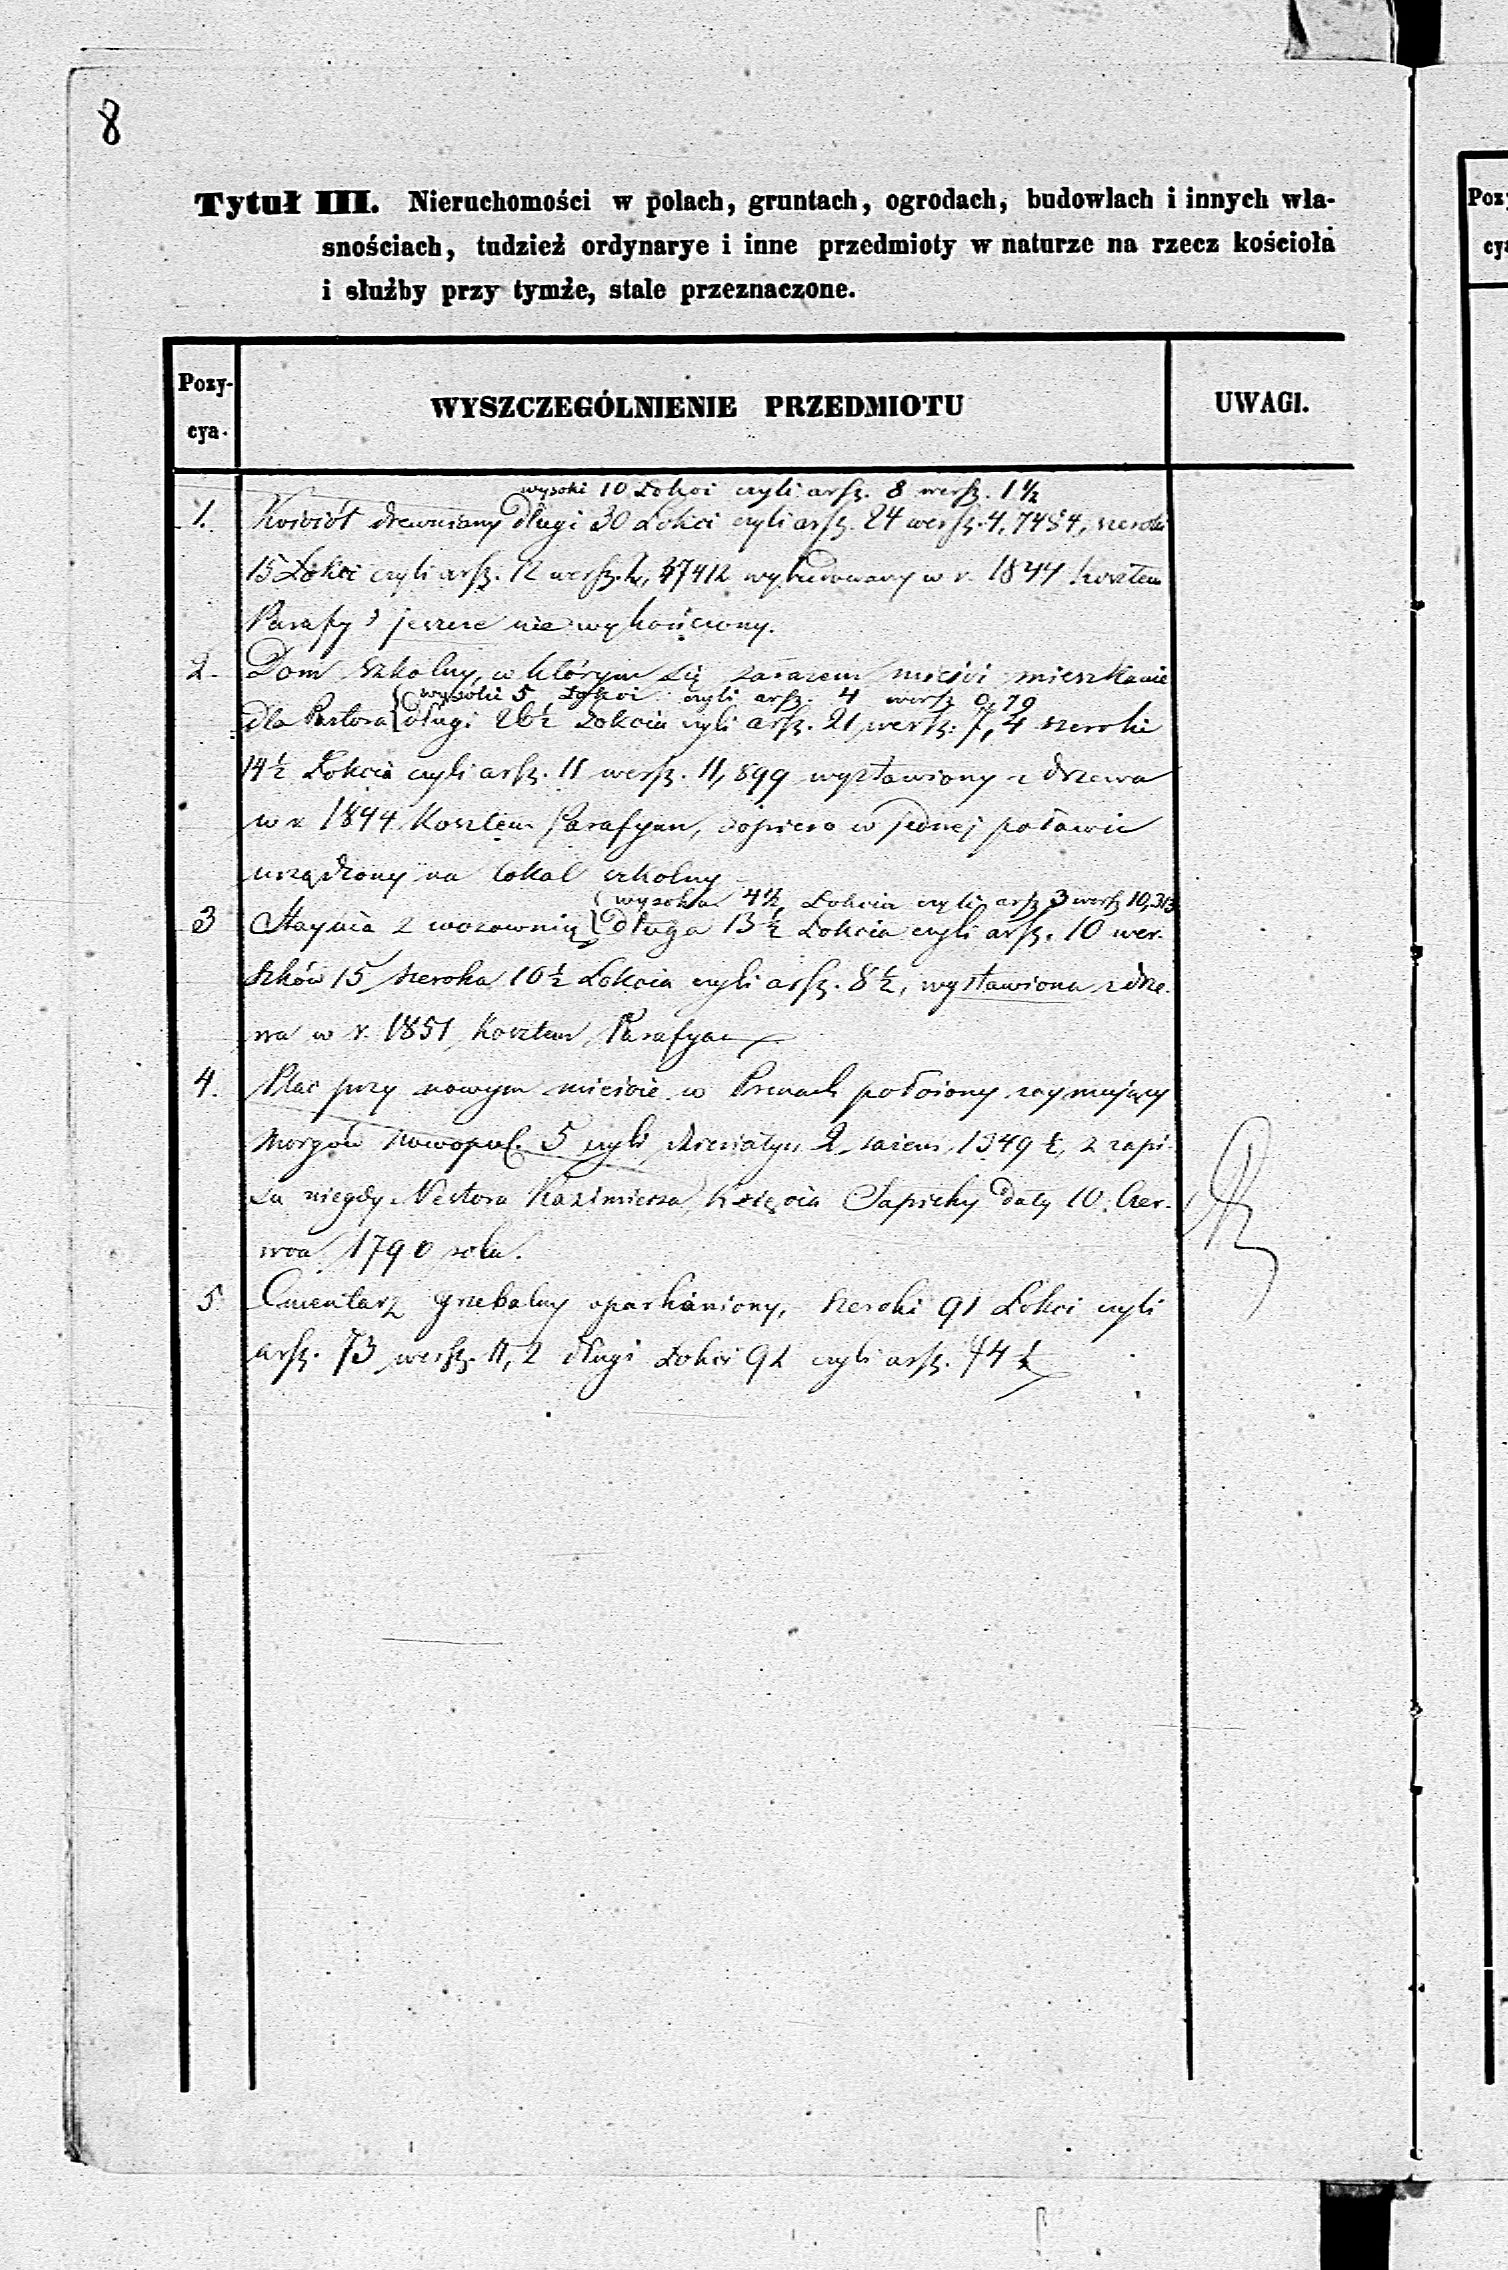 8
Tytuł III. Nieruchomości w polach, gruntach, ogrodach, budowlach i innych wła-
snościach, tudzież ordynarye i inne przedmioty w naturze na rzecz kościoła
i służby przy tymże, stale przeznaczone.
Pozy-
cya.
WYSZCZEGÓLNIENIE PRZEDMIOTU
UWAGI.
Pozy
cya
wysoki 10 Łokci czyli arsz. 8 wersz. 1½
1. Kościół drewniany długi 30 Łokci czyli arsz. 24 wersz. 4,7484, szeroki
15 Łokci czyli arsz. 12 wersz. 2, 37412 wybudowany w r. 1844 kosztem
Parafyi jeszcze nie wykończony.
2. Dom szkolny, w którym się zarazem mieści mieszkanie
wysoki 5 Łokci czyli arsz. 4 wersz 0,79
dla Pastora długi 26½ Łokcia czyli arsz. 21 wersz. 7,4 szeroki
14½ Łokcia czyli arsz. 11 wersz. 11,899 wystawiony z drzewa
w r. 1844 kosztem Parafyan, dopiero w jednej połowie
urządzony na lokal szkolny
wysoka 4½ Łokcia czyli arsz 3 wersz 10,313
3 Staynia z wozownią długa 13½ Łokcia czyli arsz. 10 wer-
szków 15 szeroka 10½ Łokcia czyli arsz. 8½, wystawiona z drze-
wa w r. 1851, kosztem Parafyan
4. Plac przy nowym mieście w Prenach położony zaymujący
morgów nowopol. 5 czyli dziesiatyn 2, sażeni 1349½, z zapi-
su niegdy Nestora Kazimierza Księcia Sapiehy daty 10. Czer-
wca 1790 roku.
5 Cmentarz grzebalny oparkaniony, szeroki 91 Łokci czyli
arsz. 73 wersz. 11,2 długi Łokci 92 czyli arsz. 74½